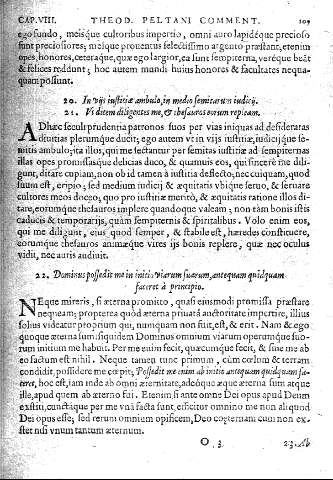 CAP. VIII. THEOD. PELTANI COMMENT. 109
ego fundo, meisque cultoribus impertio, omni auro lapidéque precioso
sunt preciosiores; meique prouentus selectissimo argento præstant, etenim
opes, honores, ceteraque, quæ ego largior, ea sunt sempiterna, veréque beāt
& felices reddunt; hoc autem mundi huius honores & facultates nequa-
quam possunt.
20. In vijs iustitiæ ambulo, in medio semitarum iudicij.
21. Vt ditem diligentes me, & thesauros eorum repleam.
ADhæc seculi prudentia patronos suos per vias iniquas ad desideratas
diuitias plerumque ducit; ego autem vt in vijs iustitiæ, iudicijque se-
mitis ambulo; ita illos, qui me sectantur per semitas iustitiæ ad sempiternas
illas opes promissasque delicias duco, & quamuis eos, qui sincerè me dili-
gunt, ditare cupiam, non ob id tamen à iustitia deflecto; nec cuiquam, quod
suum est, eripio; sed medium iudicij & æquitatis vbique seruo, & seruare
cultores meos doceo; quo pro iustitiæ meritò, & æquitatis ratione illos di-
tare, eorumque thesauros implere quandoque valeam; non tàm bonis istis
caducis & temporarijs, quàm sempiternis & spiritalibus. Volo enim eos,
qui me diligunt, eius, quod semper, & stabile est, hæredes constituere,
eorumque thesauros animæque vires ijs bonis replere, quæ nec oculus
vidit, nec auris audiuit.
22. Dominus possedit me in initio viarum suarum, antequam quidquam
faceret à principio.
NEque mireris, si æterna promitto, quasi eiusmodi promissa præstare
nequeam; propterea quòd æterna priuatâ auctoritate impertire, illius
solius videatur proprium qui, numquam non fuit, est, & erit. Nam & ego
quoque æterna sum: siquidem Dominus omnium viarum operumque suo-
rum initium me habuit. Per me enim fecit, quæcumque fecit, & sine me ab
eo factum est nihil. Neque tamen tunc primùm, cùm cœlum & terram
condidit, possidere me cœpit; Possedit me enim ab initio antequam quidquam fa-
ceret, hoc est, iam inde ab omni æternitate, adeóque æque æterna sum atque
ille, apud quem ab æterno fui. Etenim si ante omne Dei opus apud Deum
extiti, cunctáque per me vnā facta sunt, efficitur omnino me non aliquod
Dei opus esse; sed rerum omnium opificem, Deo coæternam cum non ex-
stet nisi vnum tantum æternum.
O 3 23. Ab